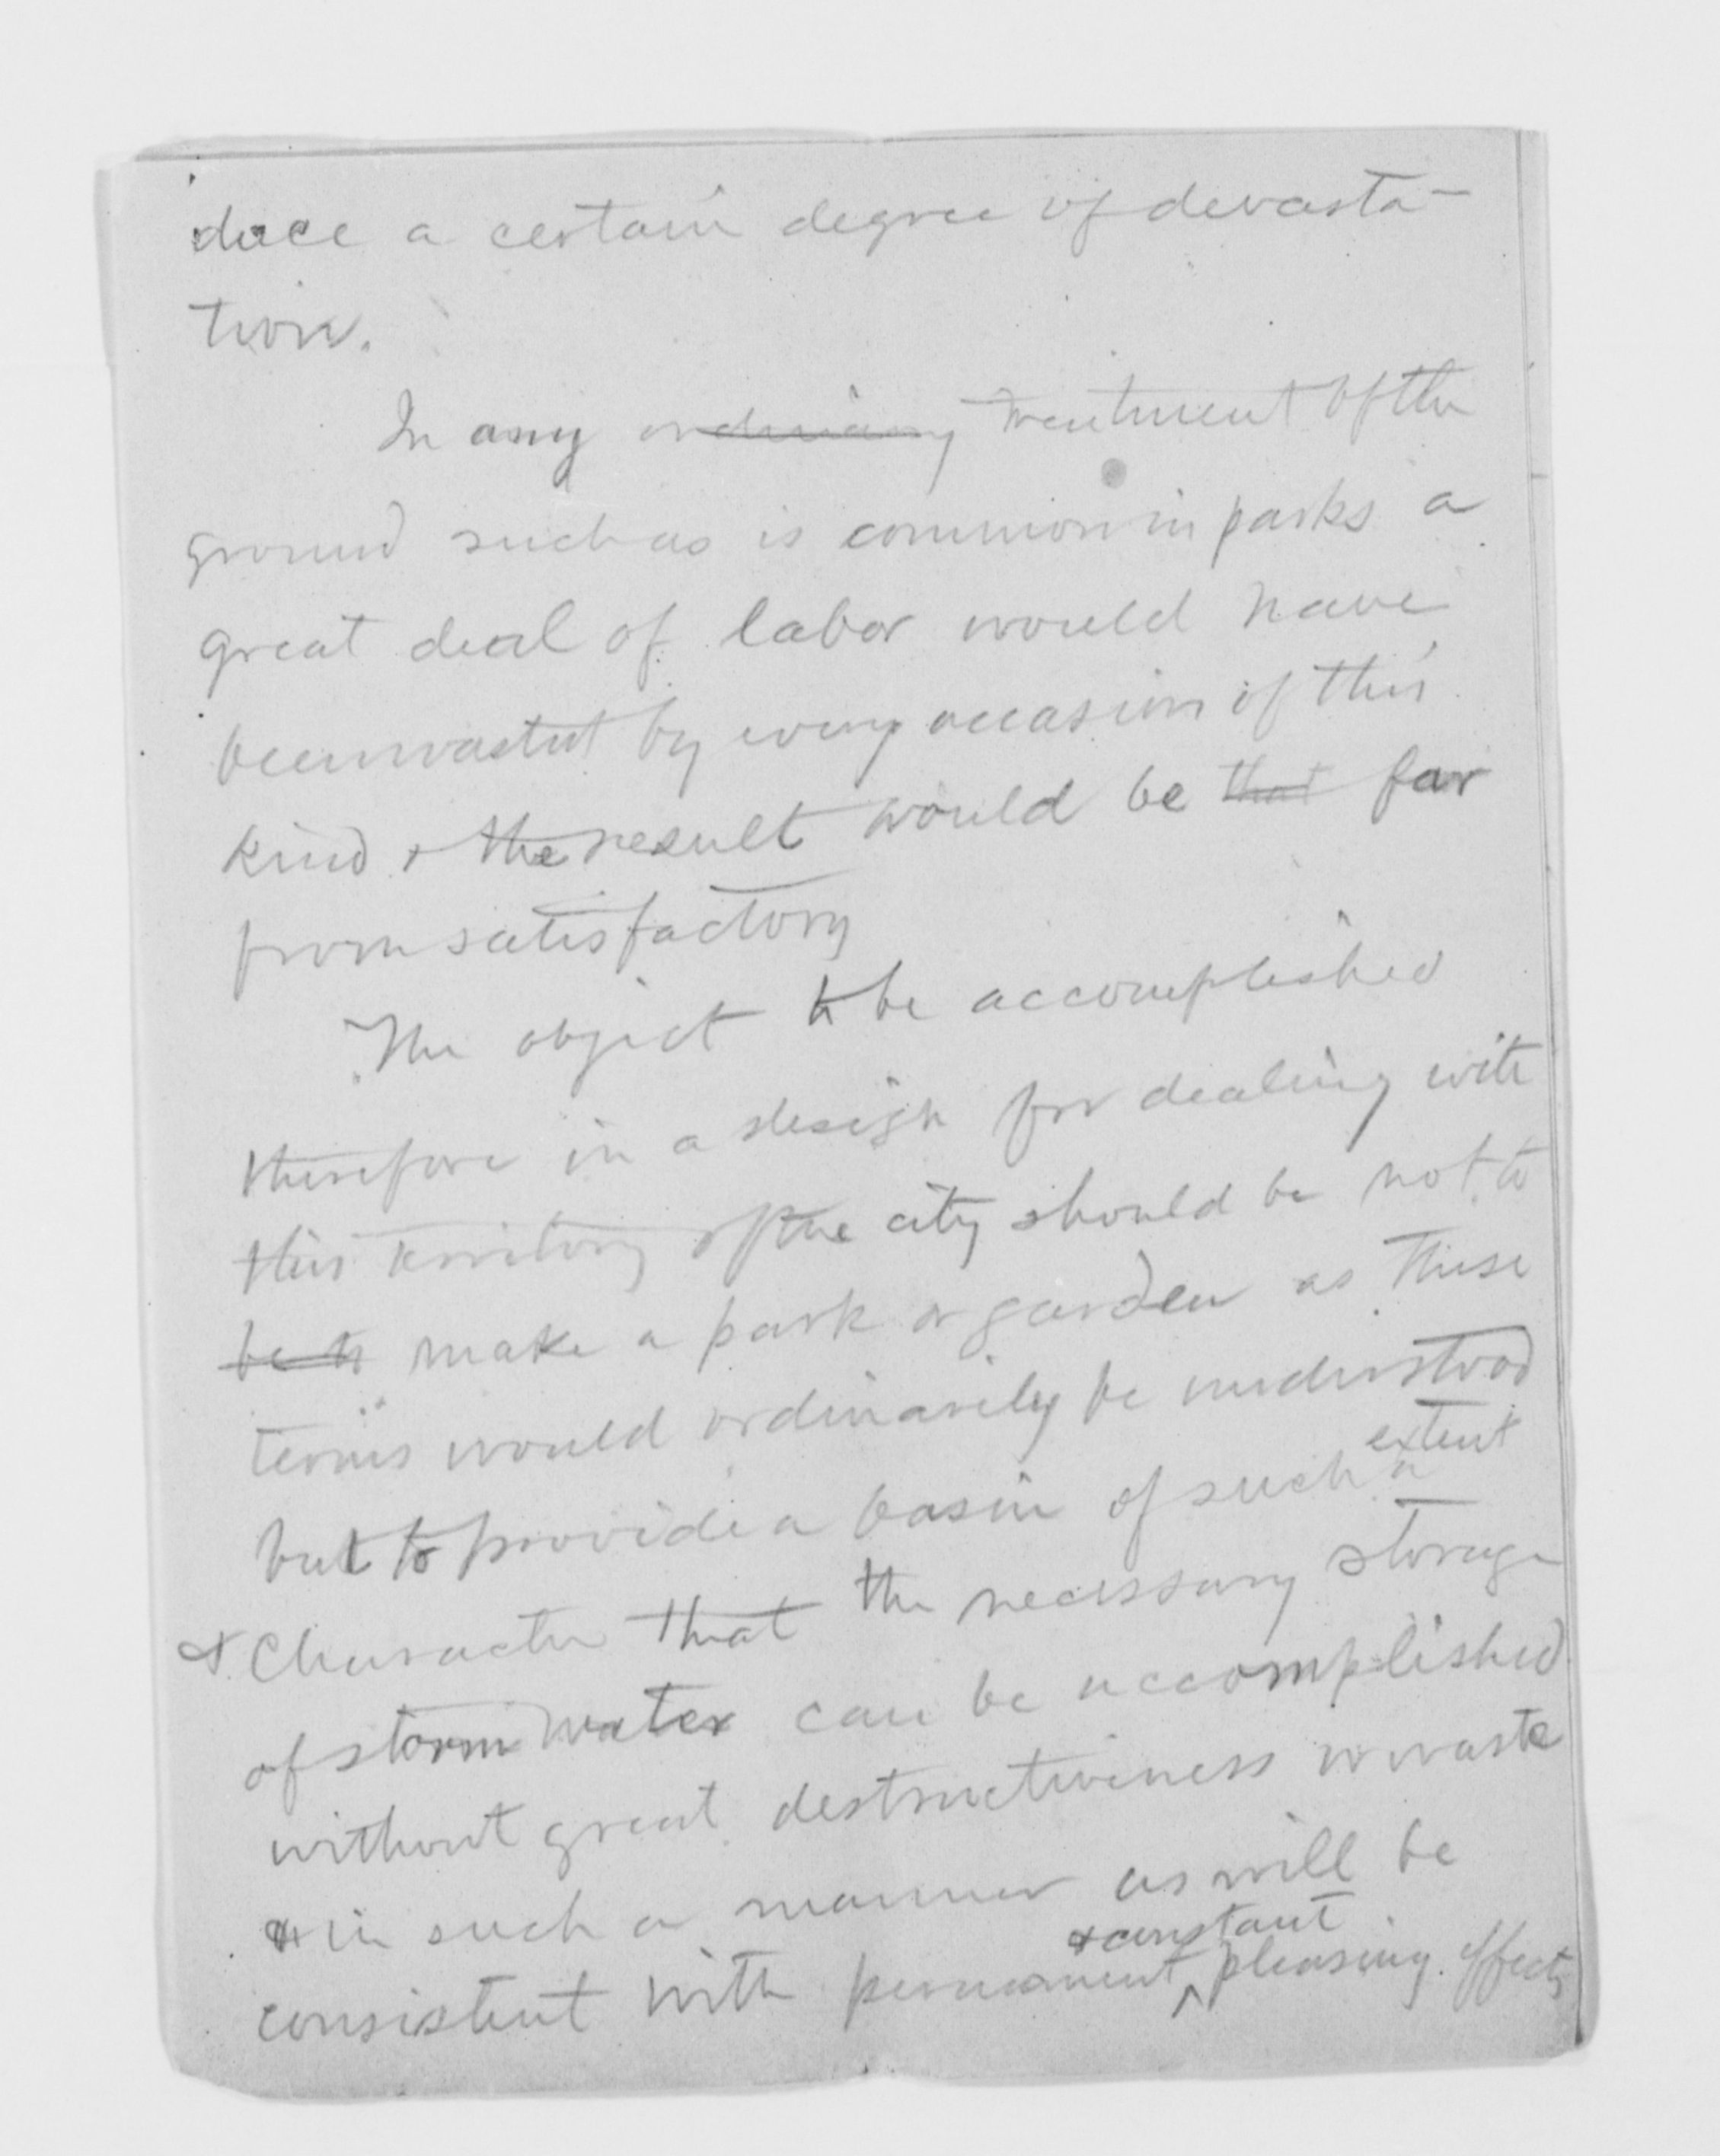 duce a certain degree of devasta-
tion.
In any ordinary treatment of the
ground such as is common in parks a
great deal of labor would have
been wasted by every occasion of this
kind & the result would be that far
from satisfactory
The object to be accomplished
therefore in a design for dealing with
this territory of the city should be not to
be to make a park or garden as these
terms would ordinarily be understood
extent
but to provide a basin of such
& character that the necessary storage
of storm water can be accomplished
without great destructiveness or waste
& in such a manner as will be
& constant
consistent with permanent ^ pleasing effects